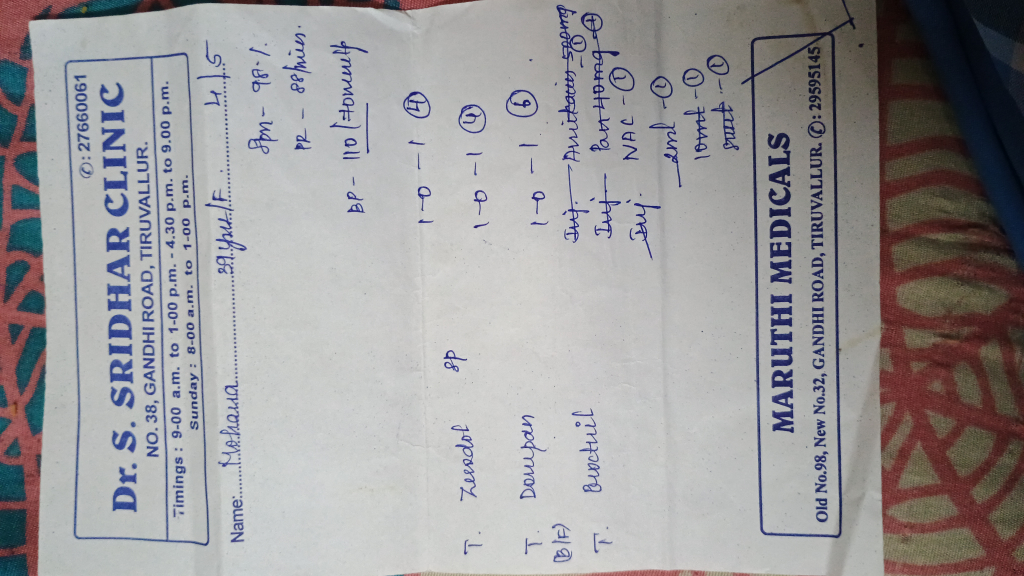 ✆: 27660061
Dr. S. SRIDHAR CLINIC
NO. 38, GANDHI ROAD, TIRUVALLUR.
Timings : 9-00 a.m. to 1-00 p.m. - 4.30 p.m. to 9.00 p.m.
Sunday : 8-00 a.m. to 1-00 p.m.
Name: Mohana 39yrs/F. 4/5
98%
PR - 88/mins.
BP - 110/70mmHg
T. Zerodol SP 1-0-1 ④
T. Dompan 1-0-1 ④
(B/F)
T. 1-0-1 ⑥
Inj. ①
Inj Pan 40mg ①
Inj. NAC - ①
2ml - ①
10ml - ①
- ①
MARUTHI MEDICALS
Old No.98, New No.32, GANDHI ROAD, TIRUVALLUR. ✆: 29595145